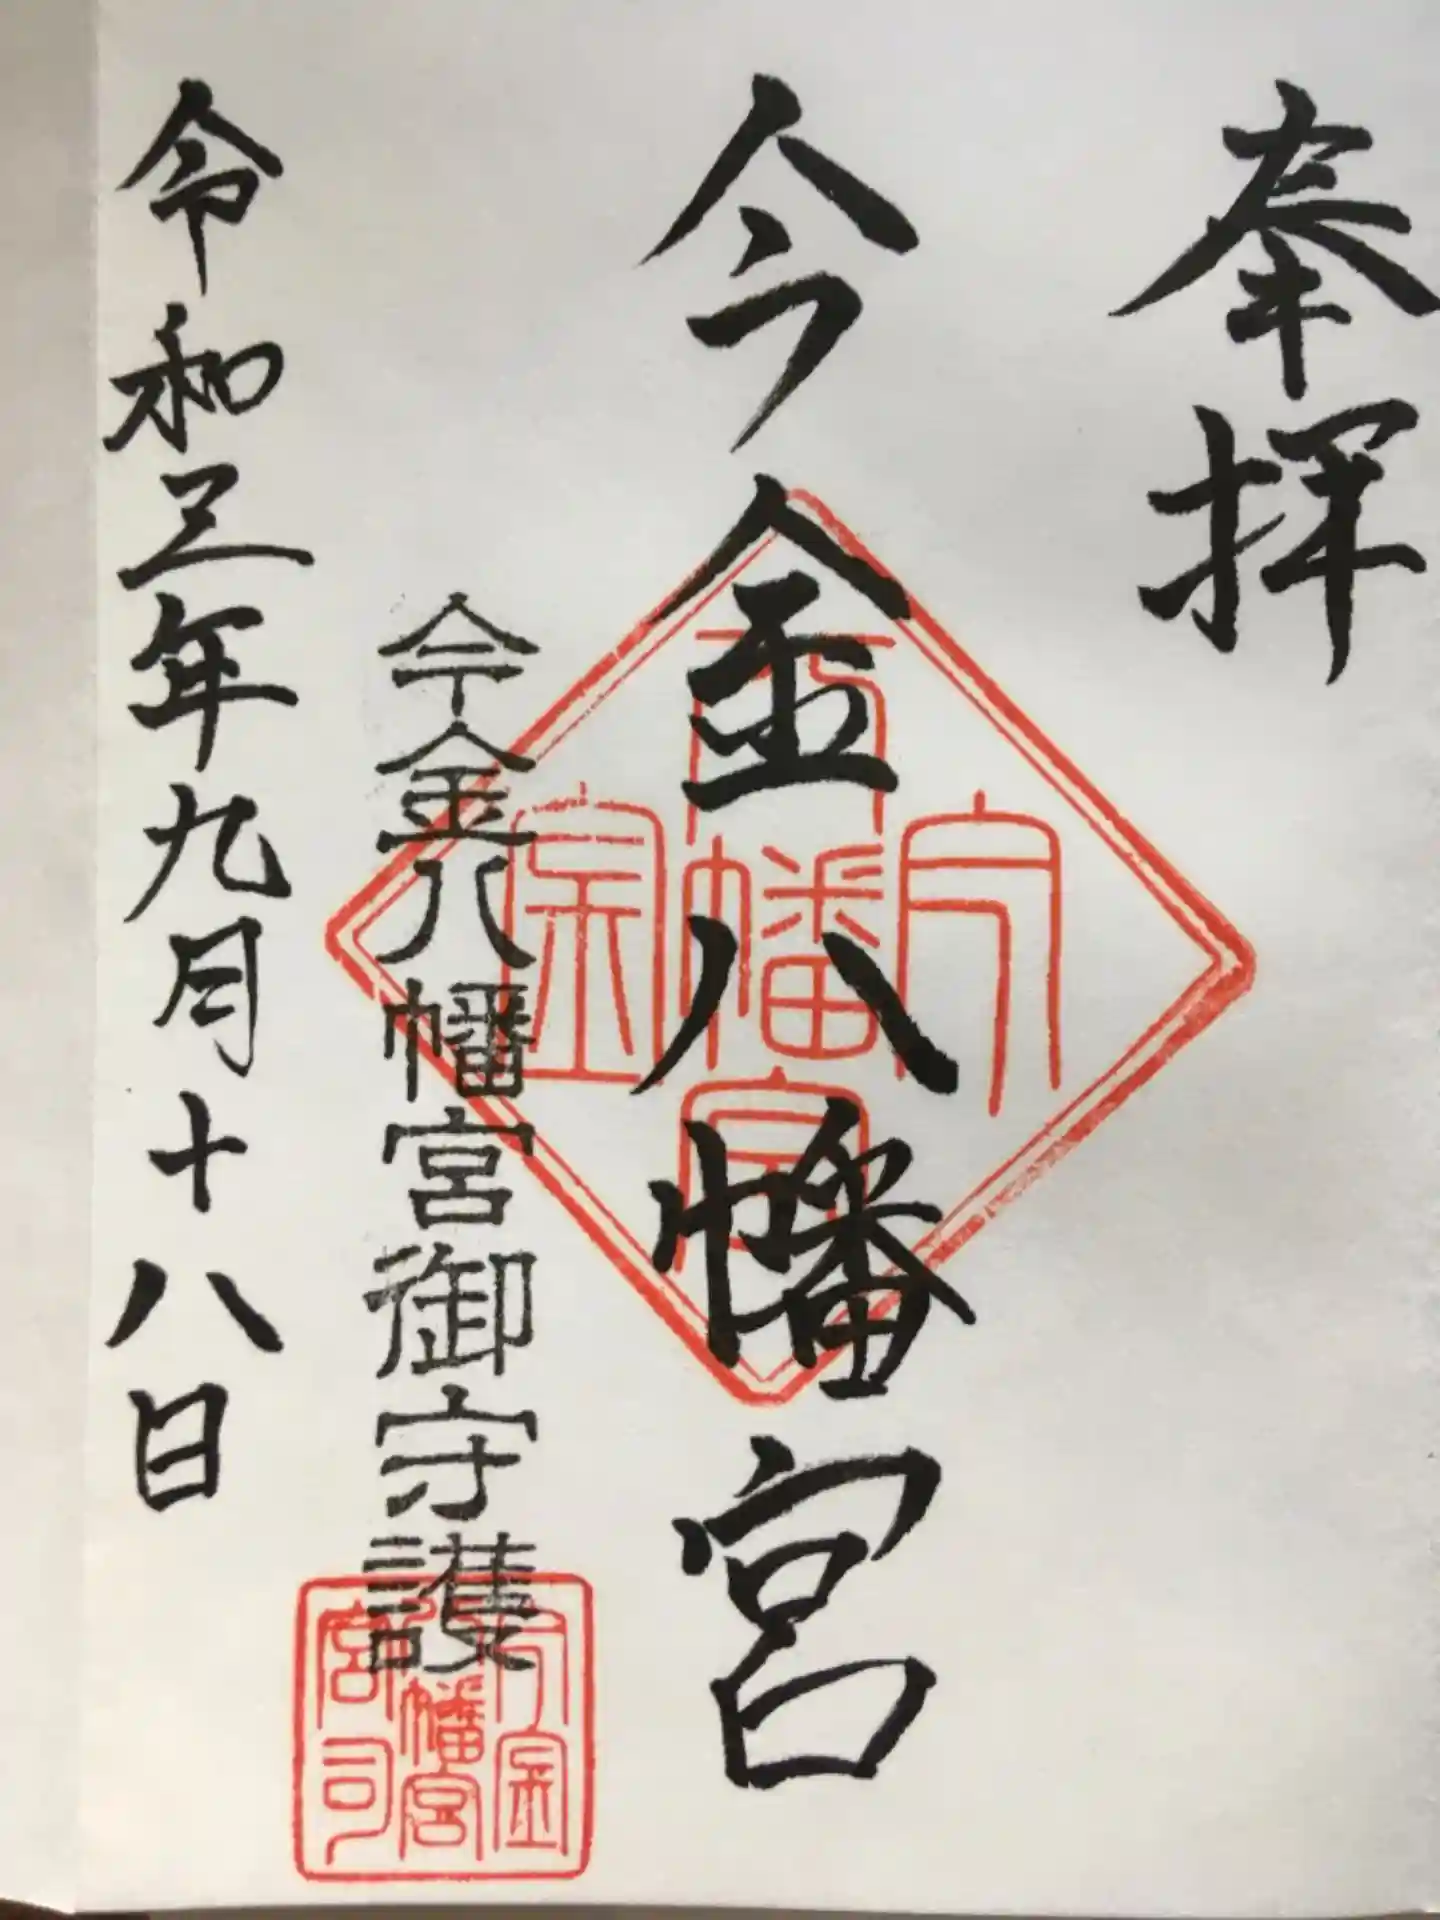 奉拝
今金八幡宮
今金八幡宮御守護
今金八幡宮
今金八幡宮宮司
令和三年九月十八日